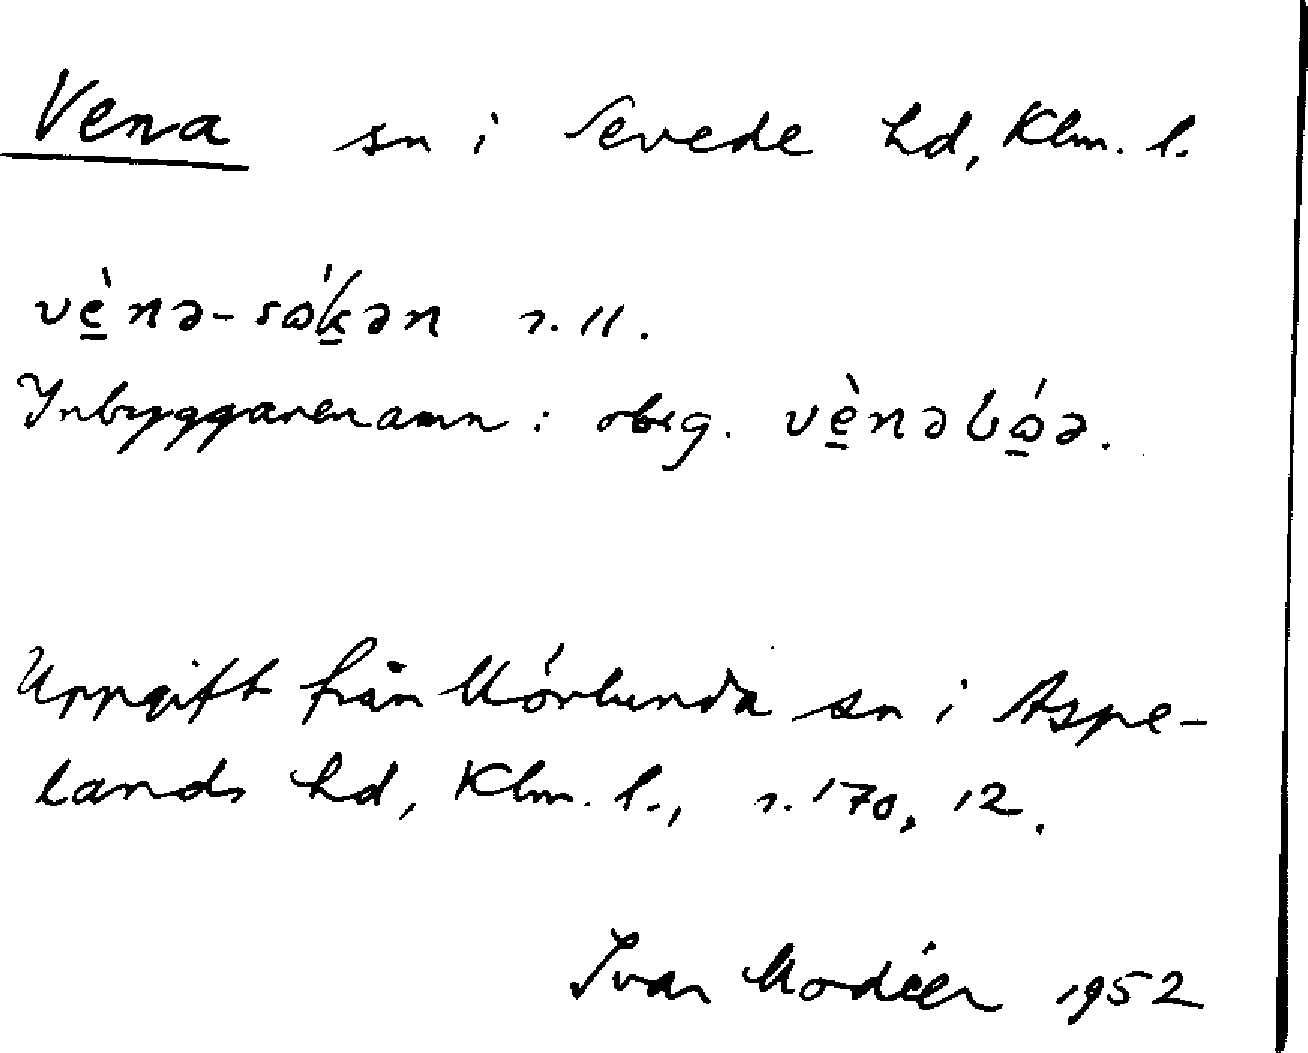 Vena sn i Sevede hd, Klm. l.
vè̱nə-sɷ́ḵən s. 11.
Inbyggarenamn: obrg. vè̱nəbɷ̱́ə.
Uppgift från Mörlunda sn i Aspe-
lands hd, Klm. l., s. 170, 12.
Ivar Modéer 1952